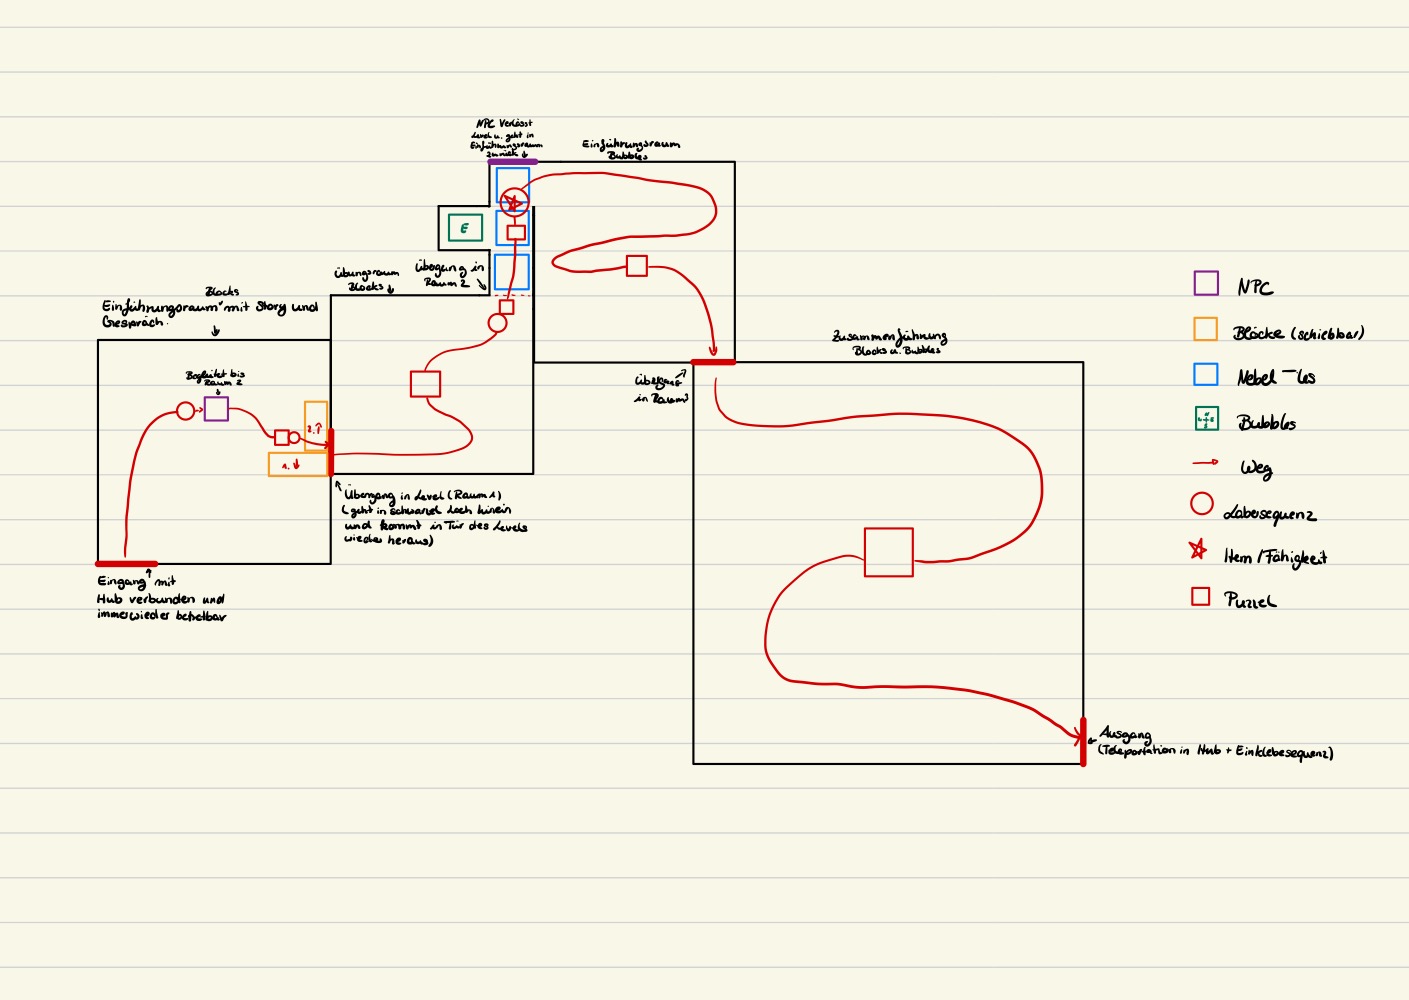 NPC Verlässt
Level u. geht in
Einführungsraum
zurück
Einführungsraum
Bubbles
E
Übergang in
Raum 2
Übungsraum
Blocks
Blocks
Einführungsraum mit Story und
Gespräch.
Begleitet bis
Raum 2
2.
1.
Übergang in Level (Raum 1)
(geht in schwarzes Loch hinein
und kommt in Tür des Levels
wieder heraus)
Eingang mit
Hub verbunden und
immer wieder betretbar
Übergang
in Raum 3
Zusammenführung
Blocks u. Bubbles
Ausgang
(Teleportation in Hub + Einklebesequenz)
NPC
Blöcke (schiebbar)
Nebel
Bubbles
Weg
Labersequenz
Item/Fähigkeit
Puzzel